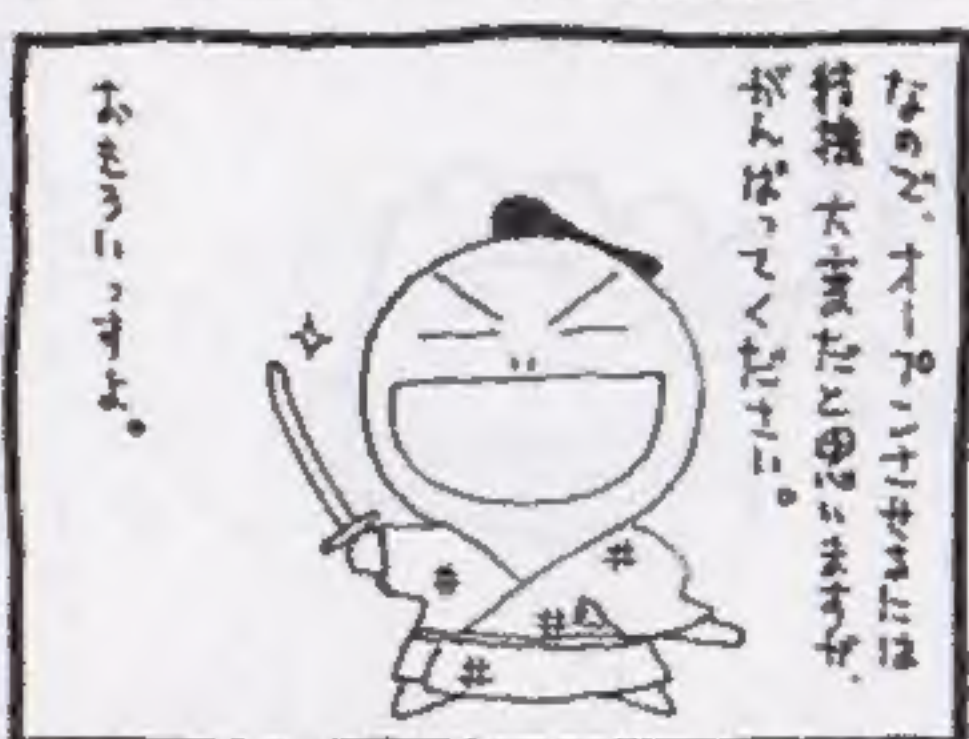 なので、オープンさせるには
結構 大変だと思いますが、
がんばってください。
おもろいっすよ。